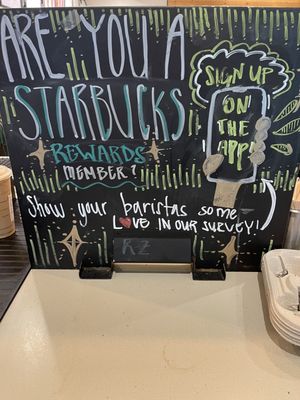 ARE YOU A
STARBUCKS
REWARDS
MEMBER?
SIGN UP
ON
THE
APP!
Show your baristas some
LOVE IN OUR SURVEY!
RZ